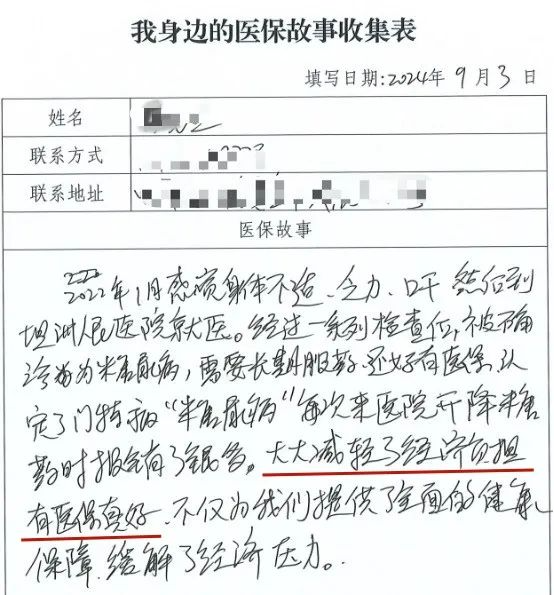 我身边的医保故事收集表
填写日期:2024年 9月 3日
姓名
联系方式
联系地址
医保故事
2022年1月感觉身体不适、乏力、口干 然后到
坦洲人民医院就医。经过一系列检查后,被确
诊为糖尿病,需要长期服药.还好有医保,认
定了门特病"糖尿病"每次来医院开降糖
药时报销有了，大大减轻了经济负担
有医保真好.不仅为我们提供了全面的健康
保障.缓解了经济压力。